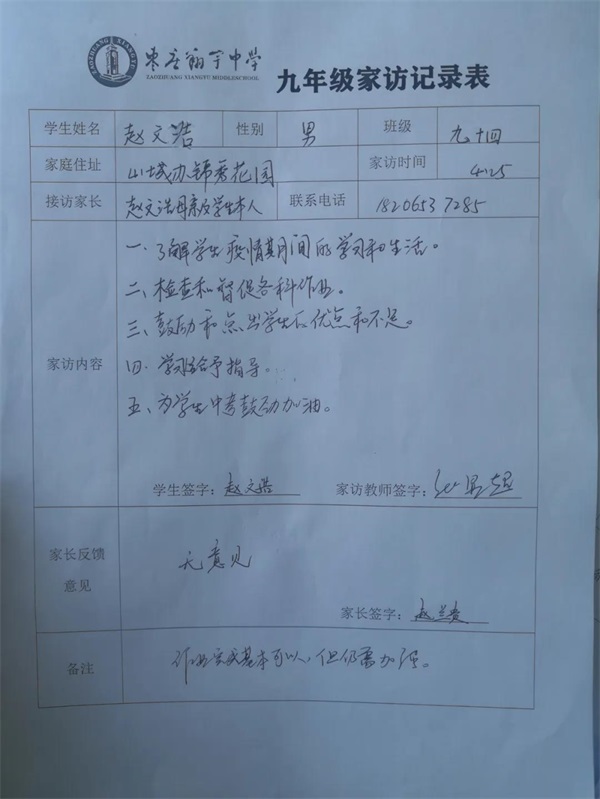 枣庄翔宇中学
ZAOZHUANG XIANGYU MIDDLESCHOOL
九年级家访记录表
学生姓名 赵文浩 性别 男 班级 九十四
家庭住址 山城办锦秀花园 家访时间 4.25
接访家长 赵文浩母亲及学生本人 联系电话 18206537285
一.了解学生疫情期间的学习和生活。
二、检查和督促各科作业。
三、鼓励和点出学生的优点和不足。
家访内容
四.学习给予指导。
五、为学生中考鼓劲加油。
学生签字:赵文浩 家访教师签字:
家长反馈
意见
无意见
家长签字:赵兰贵
备注
作业完成基本可以,但仍需加强。